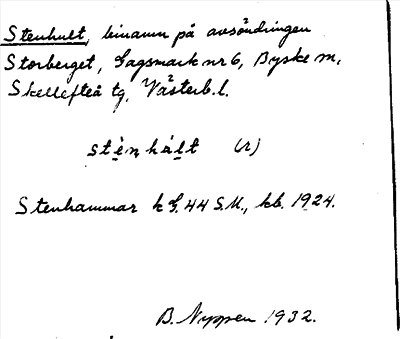 Stenhult, binamn på avsöndringen
Storberget, Gagsmark nr 6, Byske sn,
Skellefteå tg, Västerb. l.
stènhált (r)
Stenhammar k G. 44 S.U., kb. 1924.
B. Nyppen 1932.